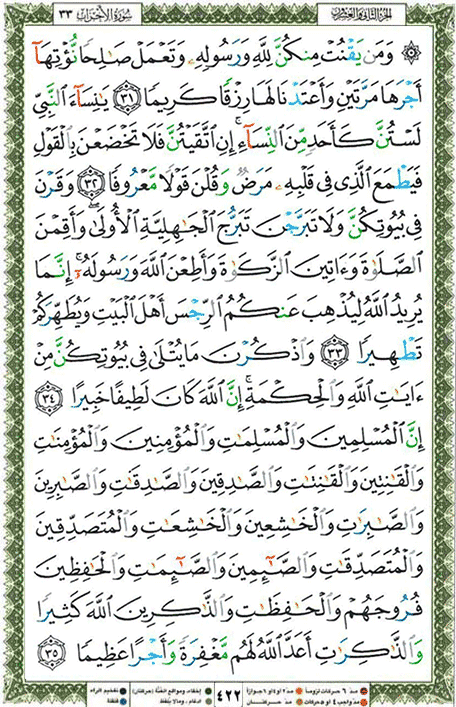 الجزء الثاني والعشرون
سورة الأحزاب ٣٣
۞ وَمَن يَقْنُتْ مِنكُنَّ لِلَّهِ وَرَسُولِهِۦ وَتَعْمَلْ صَـٰلِحًا نُّؤْتِهَآ
أَجْرَهَا مَرَّتَيْنِ وَأَعْتَدْنَا لَهَا رِزْقًا كَرِيمًا ٣١ يَـٰنِسَآءَ النَّبِيِّ
لَسْتُنَّ كَأَحَدٍ مِّنَ النِّسَآءِ ۚ إِنِ اتَّقَيْتُنَّ فَلَا تَخْضَعْنَ بِالْقَوْلِ
فَيَطْمَعَ الَّذِى فِى قَلْبِهِۦ مَرَضٌ وَقُلْنَ قَوْلًا مَّعْرُوفًا ٣٢ وَقَرْنَ
فِى بُيُوتِكُنَّ وَلَا تَبَرَّجْنَ تَبَرُّجَ الْجَـٰهِلِيَّةِ الْأُولَىٰ ۖ وَأَقِمْنَ
الصَّلَوٰةَ وَءَاتِينَ الزَّكَوٰةَ وَأَطِعْنَ اللَّهَ وَرَسُولَهُۥٓ ۚ إِنَّمَا
يُرِيدُ اللَّهُ لِيُذْهِبَ عَنكُمُ الرِّجْسَ أَهْلَ الْبَيْتِ وَيُطَهِّرَكُمْ
تَطْهِيرًا ٣٣ وَاذْكُرْنَ مَا يُتْلَىٰ فِى بُيُوتِكُنَّ مِنْ
ءَايَـٰتِ اللَّهِ وَالْحِكْمَةِ ۚ إِنَّ اللَّهَ كَانَ لَطِيفًا خَبِيرًا ٣٤
إِنَّ الْمُسْلِمِينَ وَالْمُسْلِمَـٰتِ وَالْمُؤْمِنِينَ وَالْمُؤْمِنَـٰتِ
وَالْقَـٰنِتِينَ وَالْقَـٰنِتَـٰتِ وَالصَّـٰدِقِينَ وَالصَّـٰدِقَـٰتِ وَالصَّـٰبِرِينَ
وَالصَّـٰبِرَٰتِ وَالْخَـٰشِعِينَ وَالْخَـٰشِعَـٰتِ وَالْمُتَصَدِّقِينَ
وَالْمُتَصَدِّقَـٰتِ وَالصَّـٰٓئِمِينَ وَالصَّـٰٓئِمَـٰتِ وَالْحَـٰفِظِينَ
فُرُوجَهُمْ وَالْحَـٰفِظَـٰتِ وَالذَّٰكِرِينَ اللَّهَ كَثِيرًا
وَالذَّٰكِرَٰتِ أَعَدَّ اللَّهُ لَهُم مَّغْفِرَةً وَأَجْرًا عَظِيمًا ٣٥
مد ٦ حركات لزوماً
مد ٢ او ٤ او ٦ جوازاً
إخفاء، ومواقع الغنة (حركتان)
تفخيم الراء
٤٢٢
مد واجب ٤ او ٥ حركات
مد حركتان
ادغام، وما لا يلفظ
قلقلة